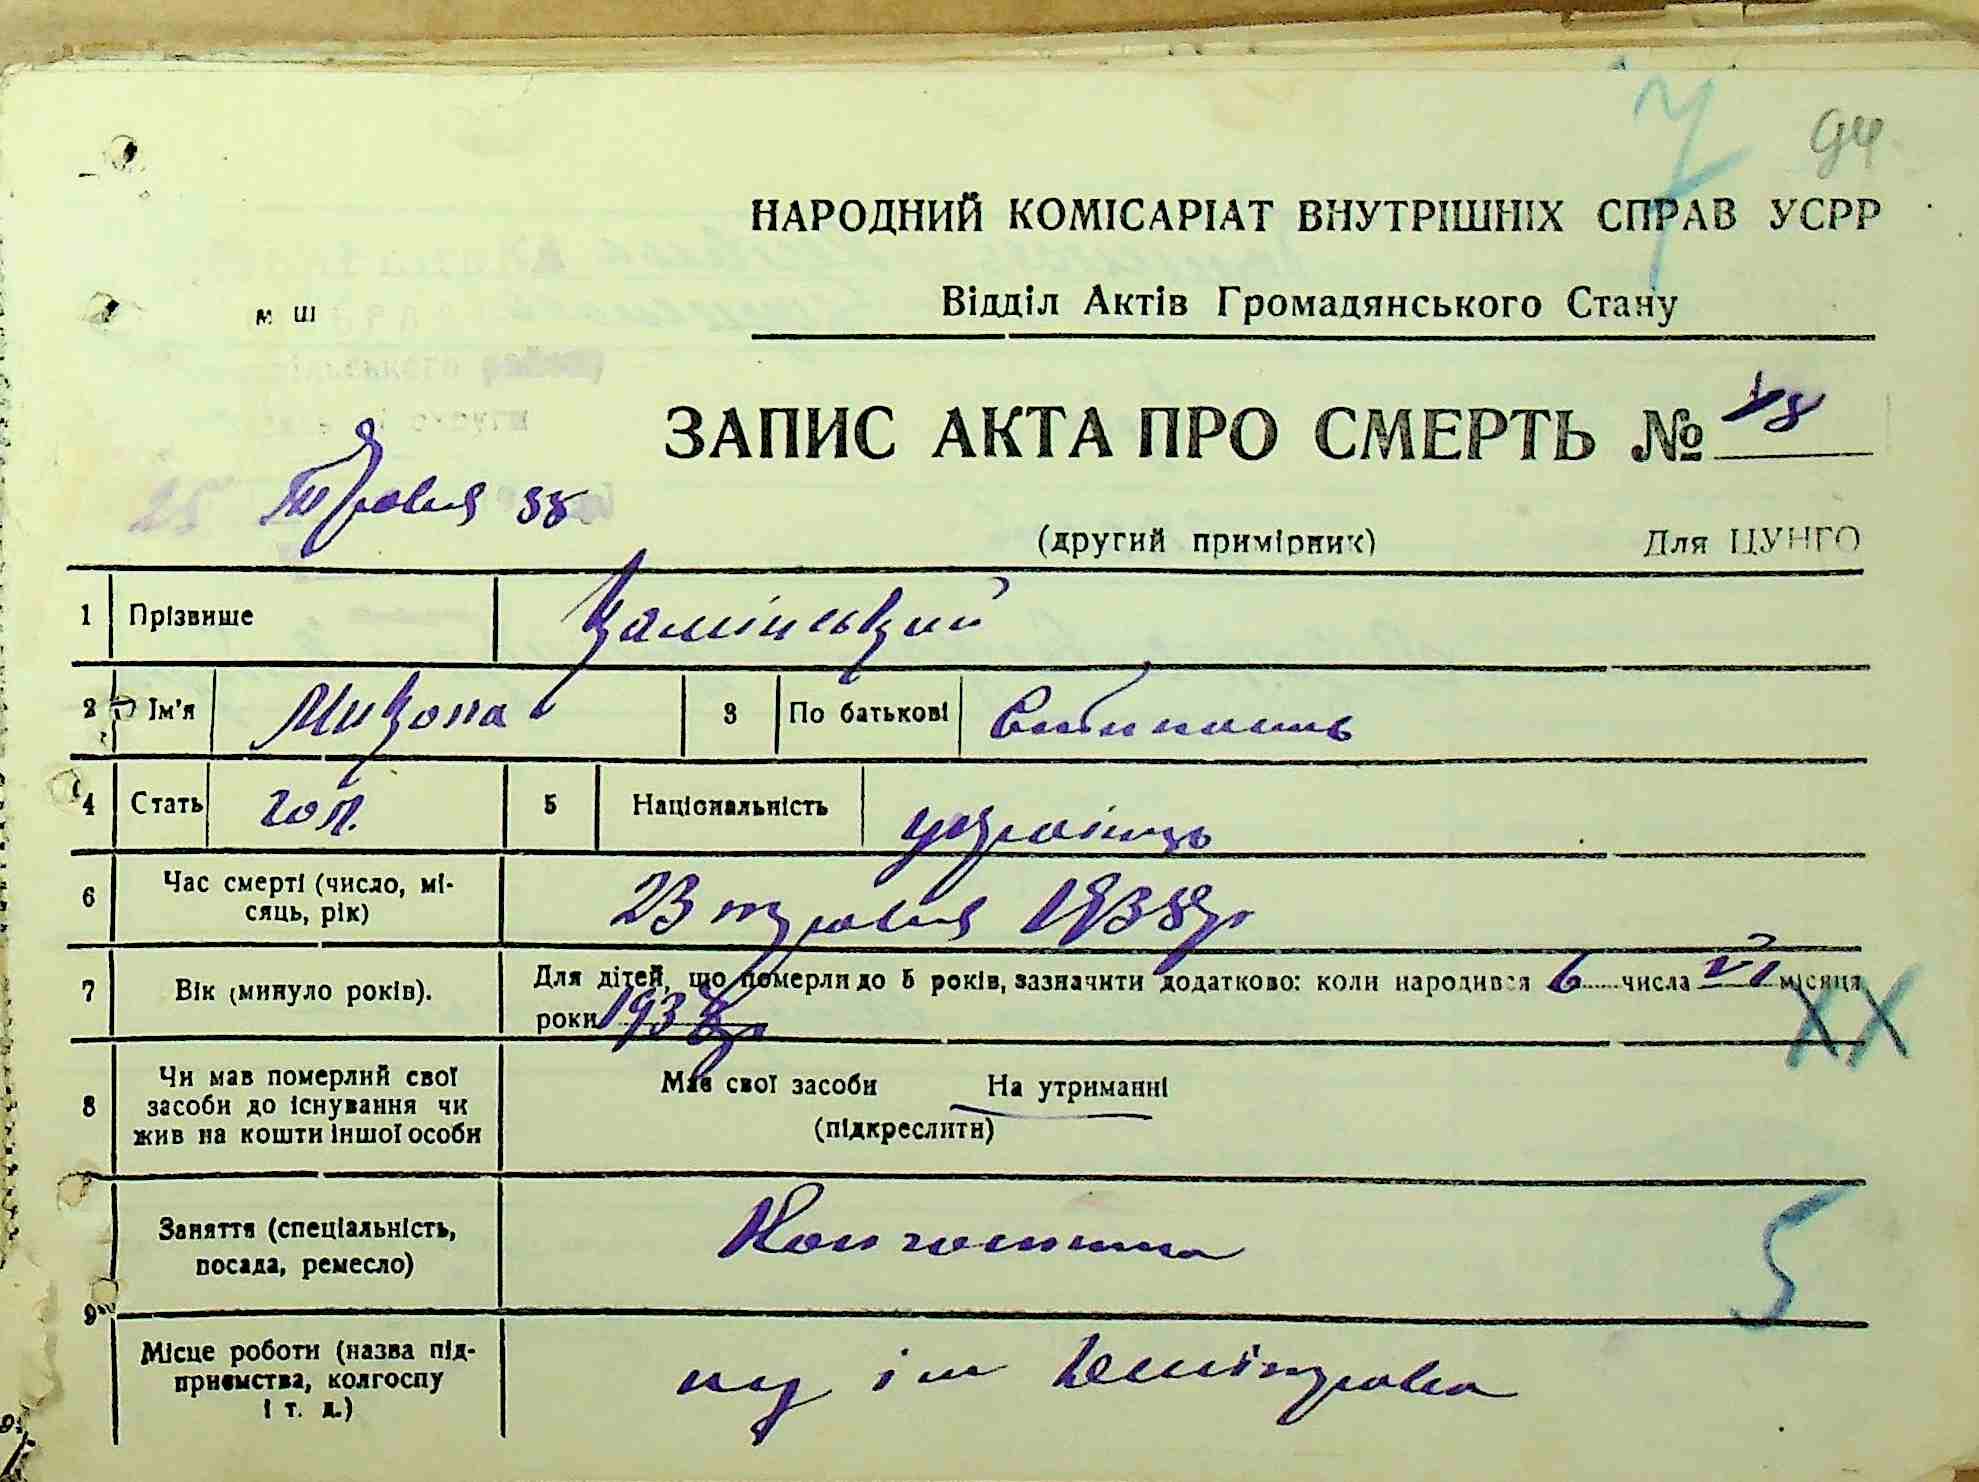 94
НАРОДНИЙ КОМІСАРІАТ ВНУТРІШНІХ СПРАВ УСРР
Відділ Актів Громадянського Стану
м Ш
ЗАПИС АКТА ПРО СМЕРТЬ № 18
25 Травня 38
(другий примірник) Для ЦУНГО
1 Прізвище Камінський
2 Ім'я Микола 3 По батькові
4 Стать чол. 5 Національність українець
6 Час смерті (число, мі-
сяць, рік) 23 травня 1938 р
7 Вік (минуло років). Для дітей, що померли до 5 років, зазначити додатково: коли народився 6 числа VI місяця
роки 193
8 Чи мав померлий свої
засоби до існування чи
жив на кошти іншої особи
Мав свої засоби На утриманні
(підкреслити)
Заняття (спеціальність,
посада, ремесло) Колгоспник
9
Місце роботи (назва під-
приємства, колгоспу
і т. д.) ім
5
XX